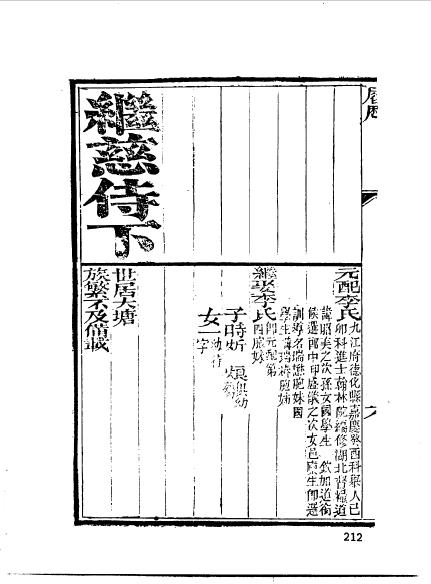 元配李氏
九江府德化縣嘉慶癸酉科舉人己
卯科進士翰林院編修湖北督糧道
諱昭美之次孫女國學生 欽加道銜
候選郎中甲盛猷之次女邑廩生卽選
訓導名瑞 胞妹國
學生諱瑞 胞姊
繼娶李氏
卽元配第
四胞妹
子時炘 俱幼
女一
幼待
字
繼慈侍下
世居大塘
族繁不及備載
212